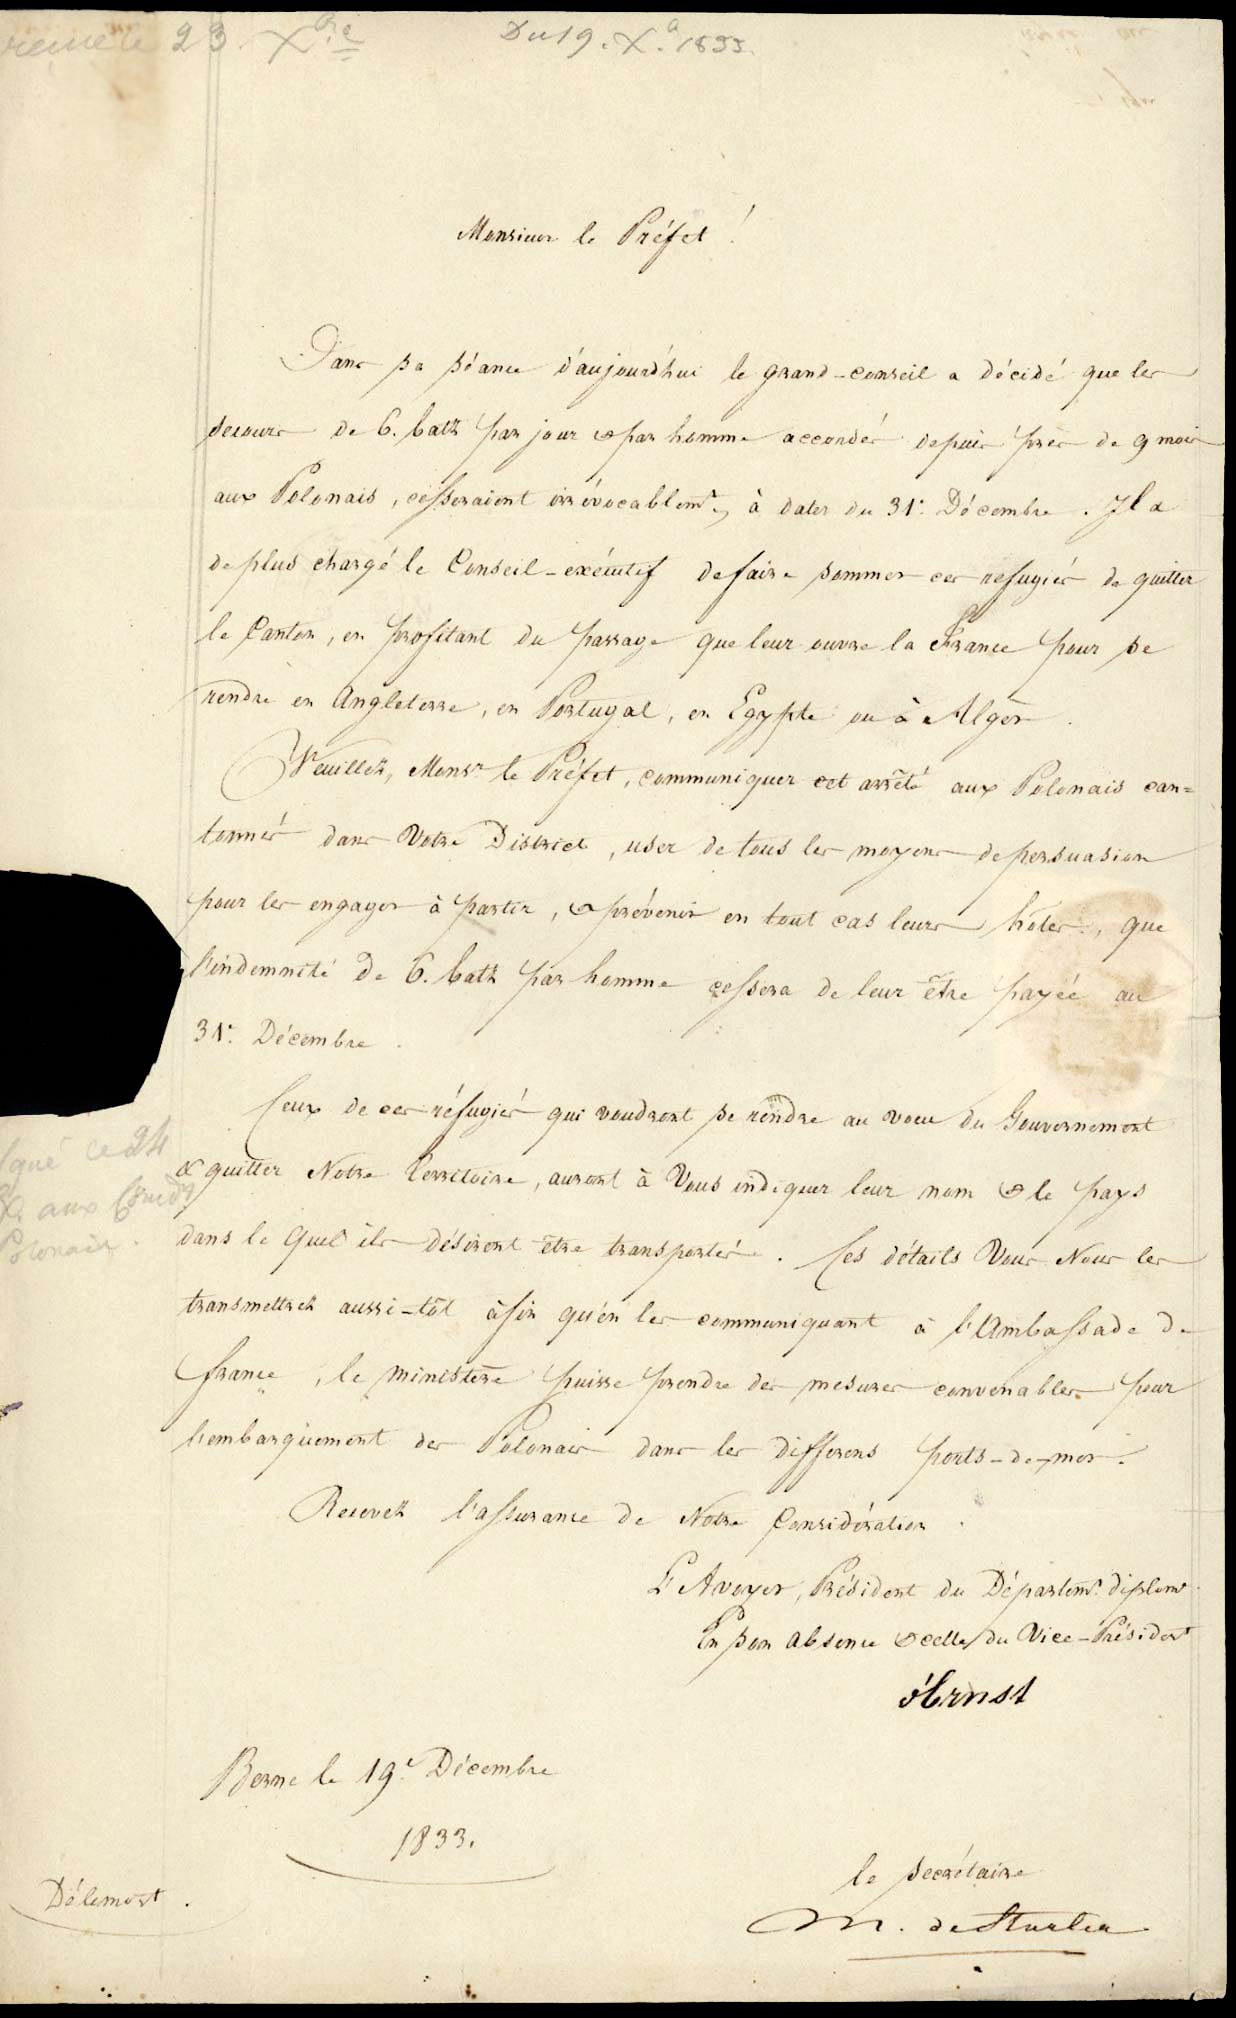 23 Xbre
Du 19. Xa. 1833.
Monsieur le Préfet!
Dans sa séance d'aujourd'hui le grand-conseil a décidé que les
secours de 6. batz par jour & par homme accordés depuis près de 9 mois
aux Polonais, cesseraient irrévocablemt, à dater du 31. Décembre. Il a
de plus chargé le Conseil-exécutif de faire sommer ces refugiés de quitter
le Canton, en profitant du passage que leur ouvre la France pour se
rendre en Angleterre, en Portugal, en Egypte ou à Alger.
Veuillez, Monsr le Préfet, communiquer cet arrêté aux Polonais can=
tonnés dans Votre District, user de tous les moyens de persuasion
pour les engager à partir, & prévenir en tout cas leurs hôtes, que
l'indemnité de 6. batz par homme cessera de leur être payée au
31. Décembre.
Ceux de ces réfugiés qui voudront se rendre au voeu du Gouvernement
& quitter Notre Territoire, auront à Vous indiquer leur nom & le pays
dans le quel ils désirent être transportés. Ces détails Vous Nous les
transmettrez aussi-tôt àfin qu'en les communiquant à l'Ambassade de
france, le ministère puisse prendre des mesures convenables pour
l'embarquement des Polonais dans les differens ports-de-mer.
Recevez l'assurance de Notre Considération.
L'Avoyer, Président du Départemt. diplomt.
En son absence & celle du Vice-Président
d'Ernst
Berne le 19e Décembre
1833.
le secrétaire
M. de Stürler
Délemont.
ce 24
aux
Polonais.